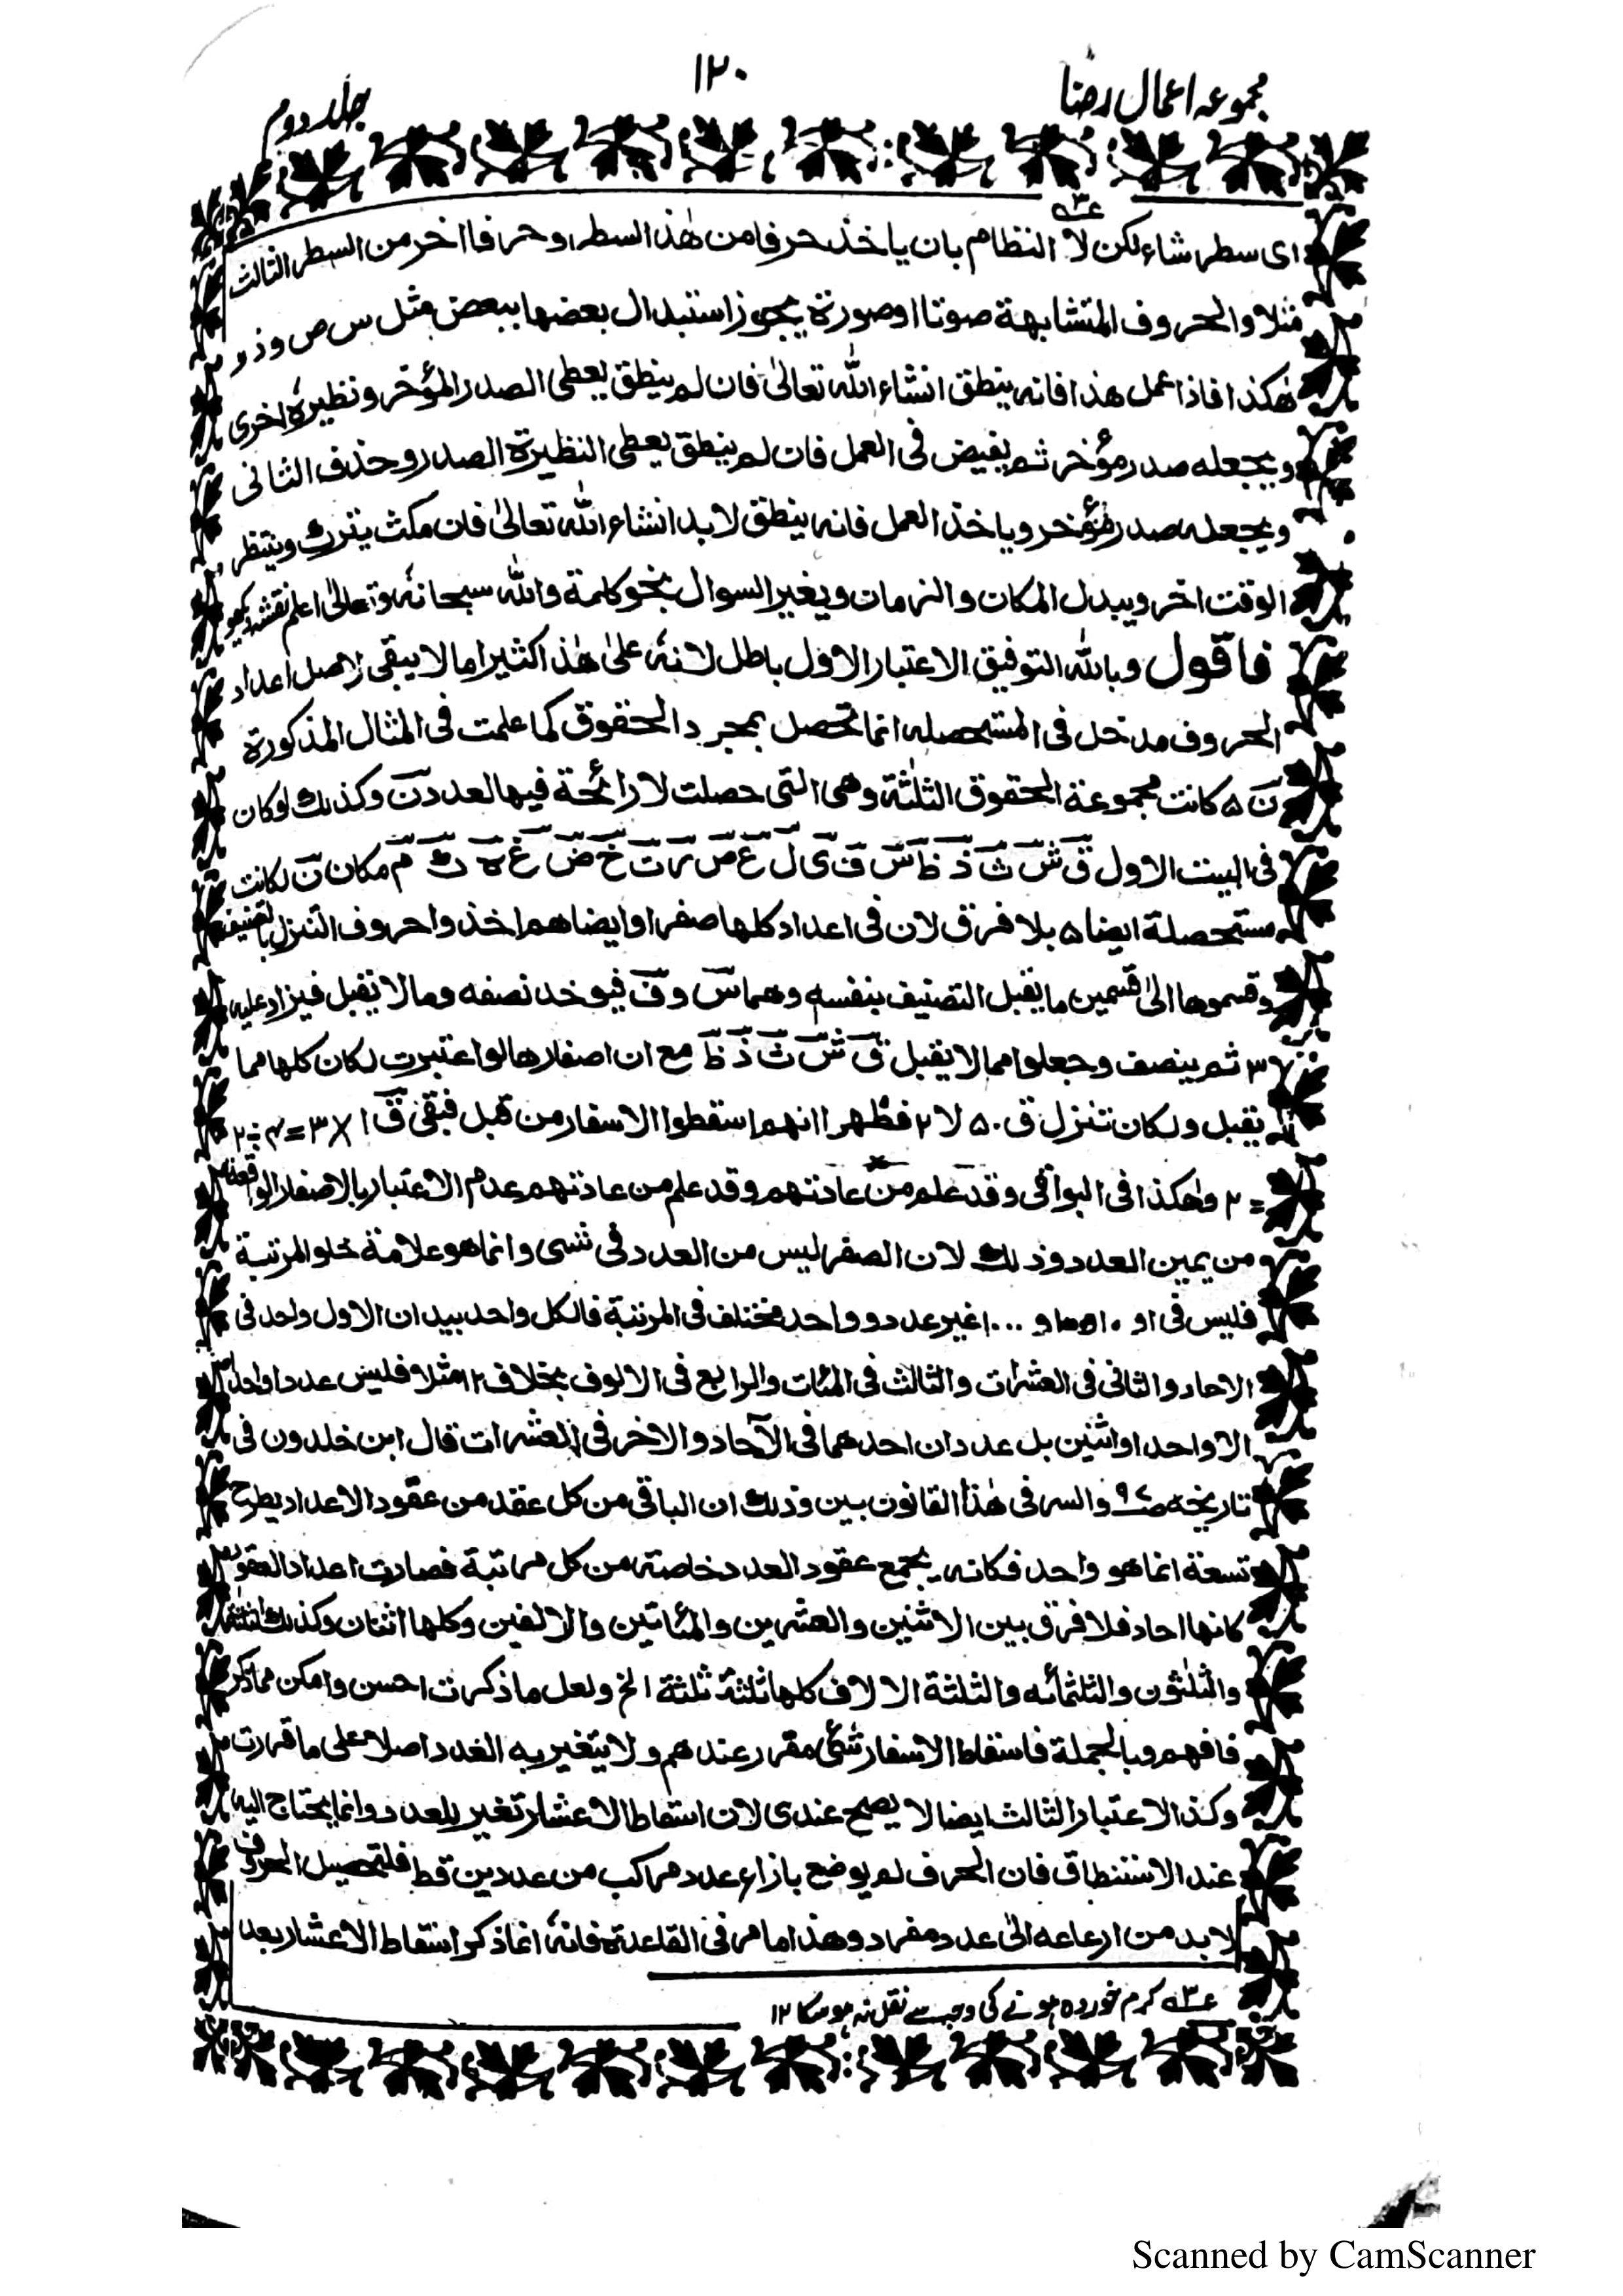 مجموعہ اعمال رضا
١٢٠
جلد دوم
ای سطر شاء لکن لا النظام بان یاخذ حرفا من ھٰذا السطر وحرفا اخر من السطر الثالث
عــہ٣
مثلا والحروف المتشابهة صوتا اوصورة یجوز استبدال بعضها ببعض مثل س ص و ذ
ھٰکذا فاذا عمل هذا فانه ینطق انشاء اللّٰه تعالیٰ فان لم ینطق یعطی الصدر المؤخر و نظیرة اخری
ویجعله صدر مؤخر ثم یفیض فی العمل فان لم ینطق یعطی النظیرة الصدر وحذف الثانی
ویجعله صدر مؤخر ویاخذ العمل فانه ینطق لابد انشاء اللّٰه تعالیٰ فان مکث یترک وینتظر
الوقت اخر ویبدل المکان والزمان ویغیر السوال بنحو کلمة واللّٰه سبحانهٗ وتعالیٰ اعلم نقشہ
فاقول وباللّٰه التوفیق الاعتبار الاول باطل لانهٗ علیٰ ھٰذا کثیرا ما لا یبقی لاصل اعداد
الحروف مدخل فی المستحصله انما تحصل بمجرد الحقوق کما علمت فی المثال المذکورة
نَ ۵ کانت مجموعة الحقوق الثلٰثة وهی التی حصلت لا رائحة فیها لعدد نَ وکذلك لوکان
فی البیت الاول ق ش ث ذ ظ س ف ی ل ع ص ر ت خ ض غ ہ ك م مکان ن لکانت
مستحصلة ایضا ۵ بلا فرق لان فی اعداد کلها صفرا وایضا هم اخذوا حروف التنزل بالتنصیف
وقسموها الیٰ قسمین ما یقبل التصنیف بنفسه وهما س و ف فیوخذ نصفه وما لا یقبل فیزاد علیه
٣ ثم ینصف وجعلوا مما لا یقبل ق ش ث ذ ظ مع ان اصفارها لو اعتبرت لکان کلها مما
یقبل ولکان تنزل ق ۵۰ لا ٢ فظهرا انهم اسقطوا الاسفار من قبل فبقی ق ١ X ٣ = ۴ ÷ ٢
= ٢ وھٰکذا فی البواقی وقد علم من عادتهم وقد علم من عادتهم عدم الاعتبار بالاصفار الواقعة
من یمین العدد وذلك لان الصفر لیس من العدد فی شی وانما هو علامة خلو المرتبة
فلیس فی ا و ١٠ و ١٠٠ و ١٠٠٠ غیر عدد و واحد مختلف فی المرتبة فالکل واحد بید ان الاول واحد فی
الاحاد والثانی فی العشرات والثالث فی المئات والرابع فی الالوف بخلاف ١٢ مثلا فلیس عددا واحدا
الا واحد او اثنین بل عددان احدهما فی الآحاد والاخر فی العشرات قال ابن خلدون فی
تاریخه صـ٩٧ والسر فی ھٰذا القانون بین وذلك ان الباقی من کل عقد من عقود الاعداد یطرح
تسعة انما هو واحد فکانه یجمع عقود العدد خاصته من کل مراتبة فصارت اعداد العقود
کانها احاد فلا فرق بین الاثنین والعشرین والمئاتین والالفین وکلها اثنان وکذلك الثلثة
والثلٰثون والثلثمائه والثلثة الالاف کلها ثلٰثة ثلثة الخ ولعل ما ذکرت احسن وامکن مما ذکر
فافهم وبالجملة فاسقاط الاسفار شیٔ مقرر عندهم ولا یتغیر به العدد اصلا علی ما قررت
وکذا الاعتبار الثالث ایضا لا یصح عندی لان اسقاط الاعشار تغیر للعدد وانما یحتاج الیه
عند الاستنطاق فان الحرف لم یوضع بازاء عدد مرکب من عددین قط فلتحصیل الحروف
لابد من ارعاعه الیٰ عدد مفرد وهذا ما مر فی القاعدة فانهٗ انما ذکر اسقاط الاعشار بعد
عــہ٣ کرم خوردہ ہونے کی وجہ سے نقل نہ ہو سکا ١٢
Scanned by CamScanner